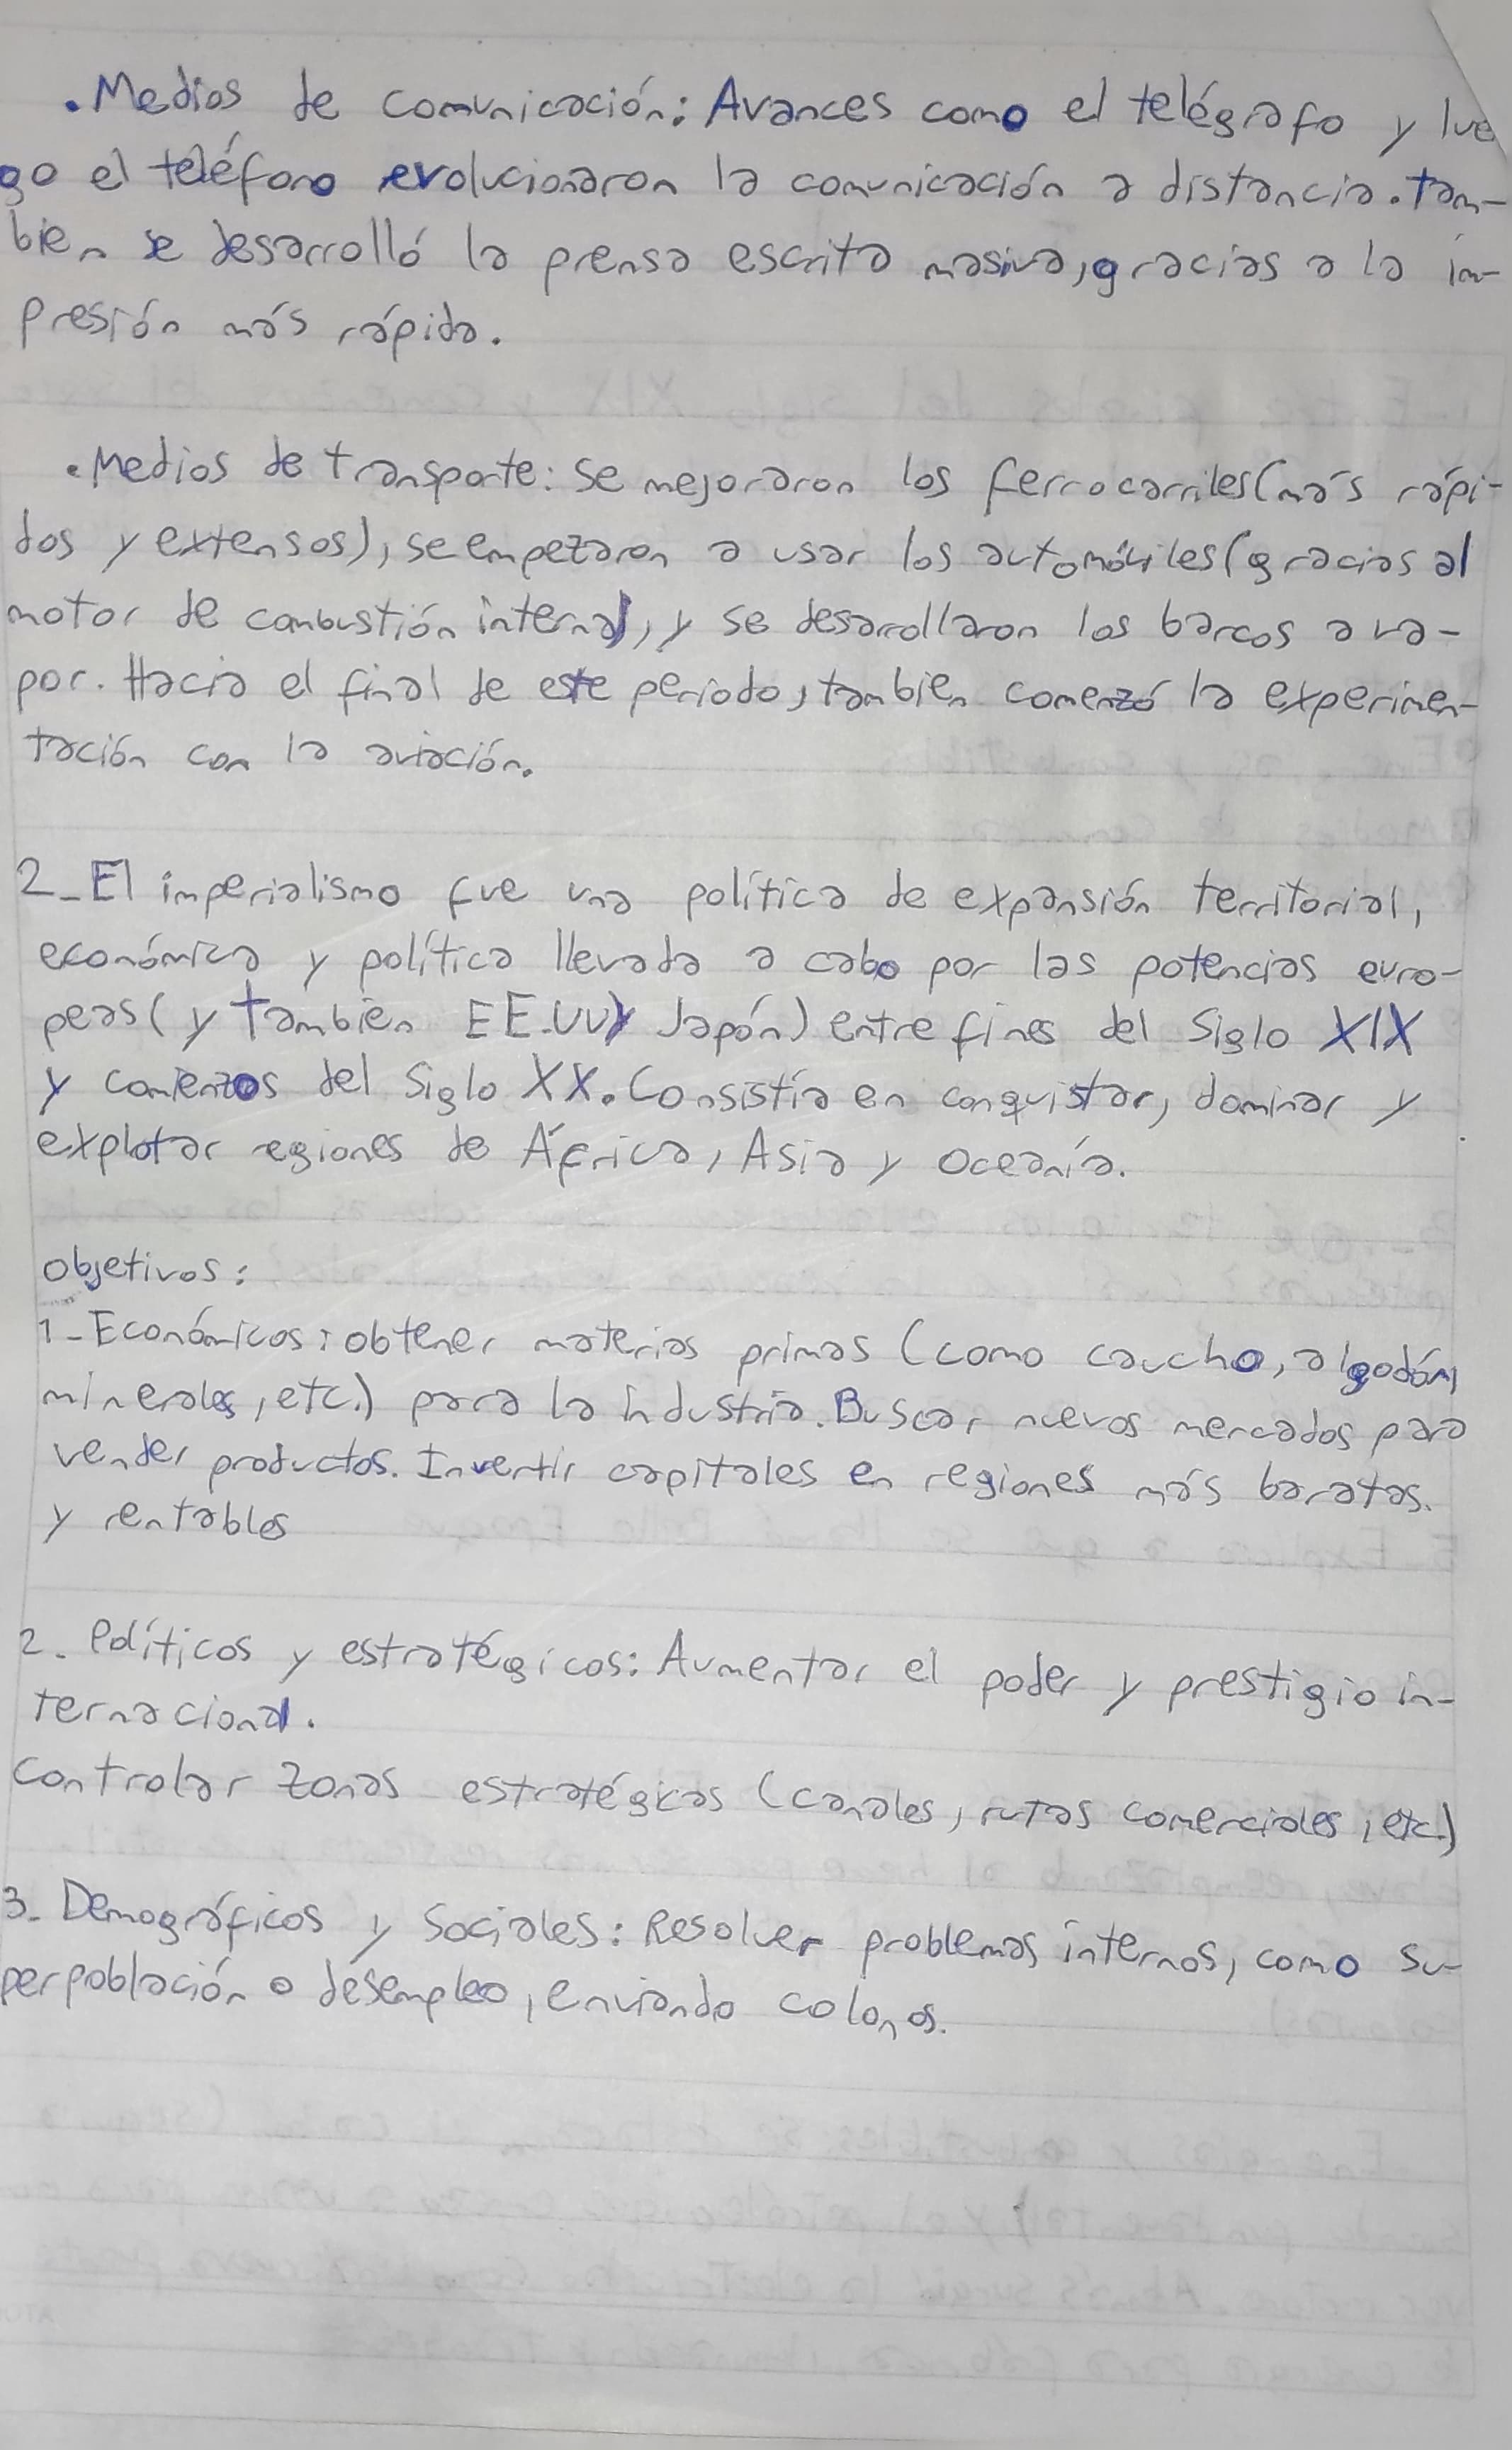 . Medios de comunicación: Avances como el telégrafo y lue
go el teléfono evolucionaron la comunicación a distancia. tam-
bien se desarrolló la prensa escrita masiva, gracias a la im-
presión más rápida.
. Medios de transporte: se mejoraron los ferrocarriles (más rápi-
dos y extensos), se empezaron a usar los automóviles (gracias al
motor de combustión interna), y se desarrollaron los barcos a va-
por. Hacia el final de este periodo, tambien comenzó la experimen-
tación con la aviación.
2_ El imperialismo fue una política de expansión territorial,
económica y política llevada a cabo por las potencias euro-
peas (y tambien EE.UU y Japón) entre fines del Siglo XIX
y comienzos del Siglo XX. Consistía en conquistar, dominar y
explotar regiones de África, Asia y Oceanía.
Objetivos:
1_ Económicos: obtener materias primas (como caucho, algodón,
minerales, etc.) para la industria. Buscar nuevos mercados para
vender productos. Invertir capitales en regiones más baratas.
y rentables
2. Políticos y estratégicos: Aumentar el poder y prestigio in-
ternacional.
Controlar zonas estratégicas (canales, rutas comerciales, etc.)
3. Demográficos y Sociales: Resolver problemas internos, como su-
perpoblación o desempleo, enviando colonos.